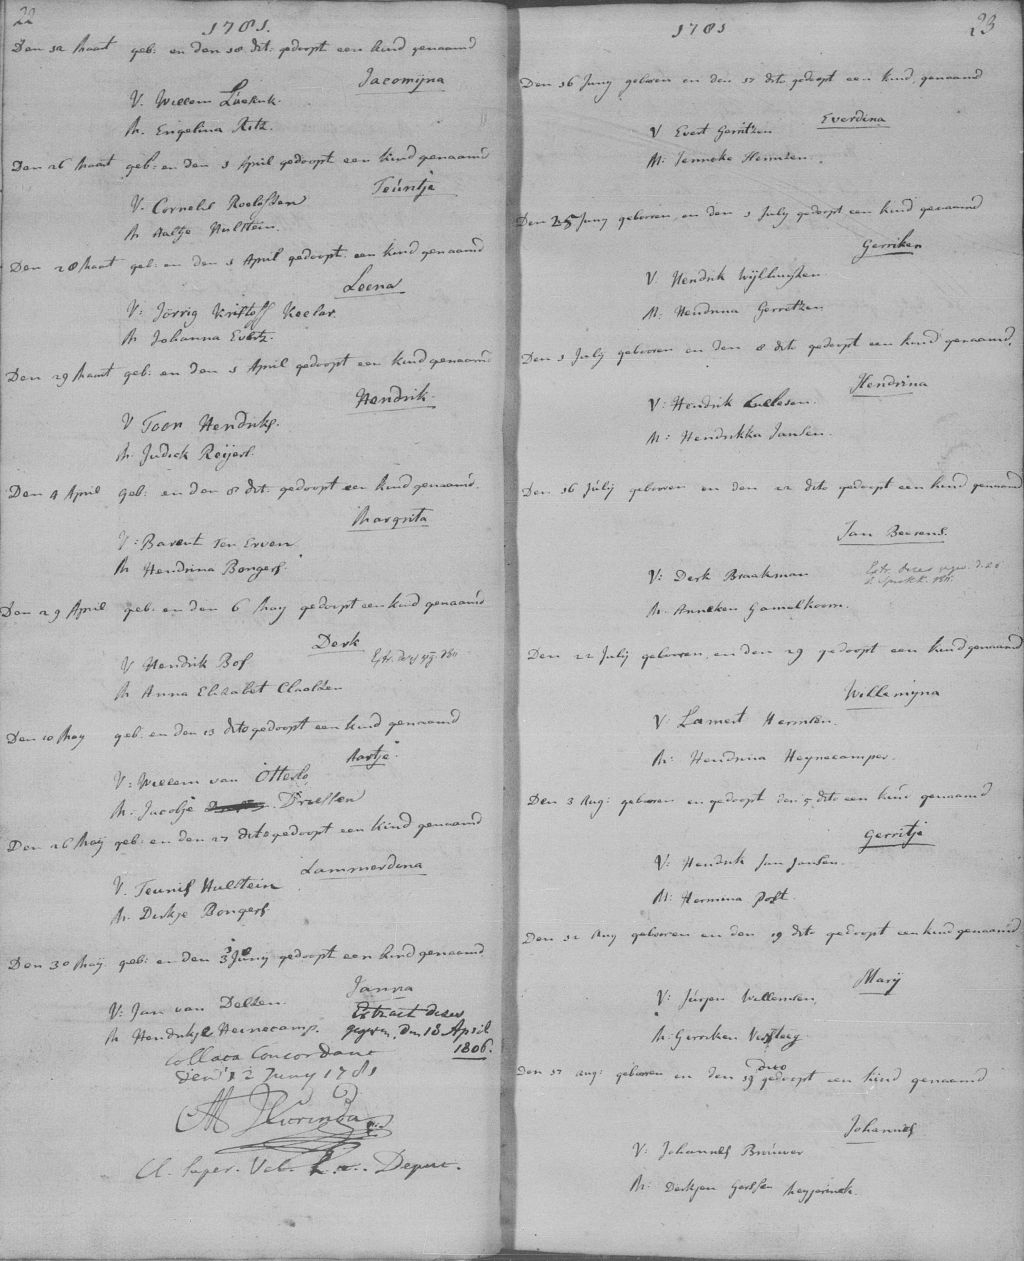 22
1781.
Den 12 Maart geb: en den 18 dit: gedoopt een kind genaamd
Jacomijna
V. Willem
M. Engelina Ritz.
Den 26 Maart geb: en den 1 April gedoopt een kind genaamd
Teúntje
V. Cornelis Roelofsen
M Aaltje Hulstein.
Den 28 Maart geb: en den 1 April gedoopt een kind genaamd
Leena
V: Jörrig Kristoff Keeler
M Johanna Evertz.
Den 29 Maart geb: en den 1 April gedoopt een kind genaamd
Hendrik.
V Toon Hendriks.
M. Judick Reijers.
Den 4 April geb: en den 8 dit: gedoopt een kind genaamd.
Margrita
V: Barent Ten Erven
M Hendrina Bongers.
Den 29 April geb: en den 6 May gedoopt een kind genaamd
Derk
V Hendrik Bos
M Anna Elisabet Claassen
Den 10 May geb: en den 13 dito gedoopt een kind genaamd
Aartje.
V: Willem van Otterlo
M. Jacobje Driessen
Den 26 Maij geb: en den 27 dito gedoopt een kind genaamd
Lammerdina
V. Teunis Hulstein
M. Dirkje Bongers
Den 30 Maij. geb: en den 3 Junij gedoopt een kind genaamd
Janna
V: Jan van Delsen.
Extract deser
M Hendrikje Heinecamp.
gegeven, den 18 April
1806.
Collata Concordant
den 12 Juny 1781
Cl. Super. Vel. Deput.
23
1781
Den 16 Juny geboren en den 17 dito gedoopt een kind, genaamd
Everdina
V Evert Gerritzen
M: Jenneke Hermsen.
Den 25 Juny geboren, en den 1 July gedoopt een kind genaamd
Gerriken
V. Hendrik
M: Hendrina Gerretzen
Den 1 July geboren en den 8 dito gedoopt een kind genaamd.
Hendrina
V: Hendrik
M: Hendrikka Jansen.
Den 16 Júlij geboren en den 22 dito gedoopt een kind genaamd
Jan Berens.
V: Derk Braakman
M. Anneken Gamelkoorn.
Den 22 Julij geboren, en den 29 gedoopt een kind genaamd
Willemijna
V: Lamert Hermsen.
M: Hendrina Heynecamper.
Den 3 Aug: geboren en gedoopt den 5 dito een kind genaamd
Gerritje
V: Hendrik Jan Jansen.
M: Hermina Post.
Den 12 Aug geboren en den 19 dito gedoopt een kind genaamd
Marij
V: Júrjen Willemsen
M: Gerriken Versteeg
Den 17 Aug: geboren en den 19 dito gedoopt een kind genaamd
Johannes
V: Johannes Broúwer
M: Derkjen Gerssen